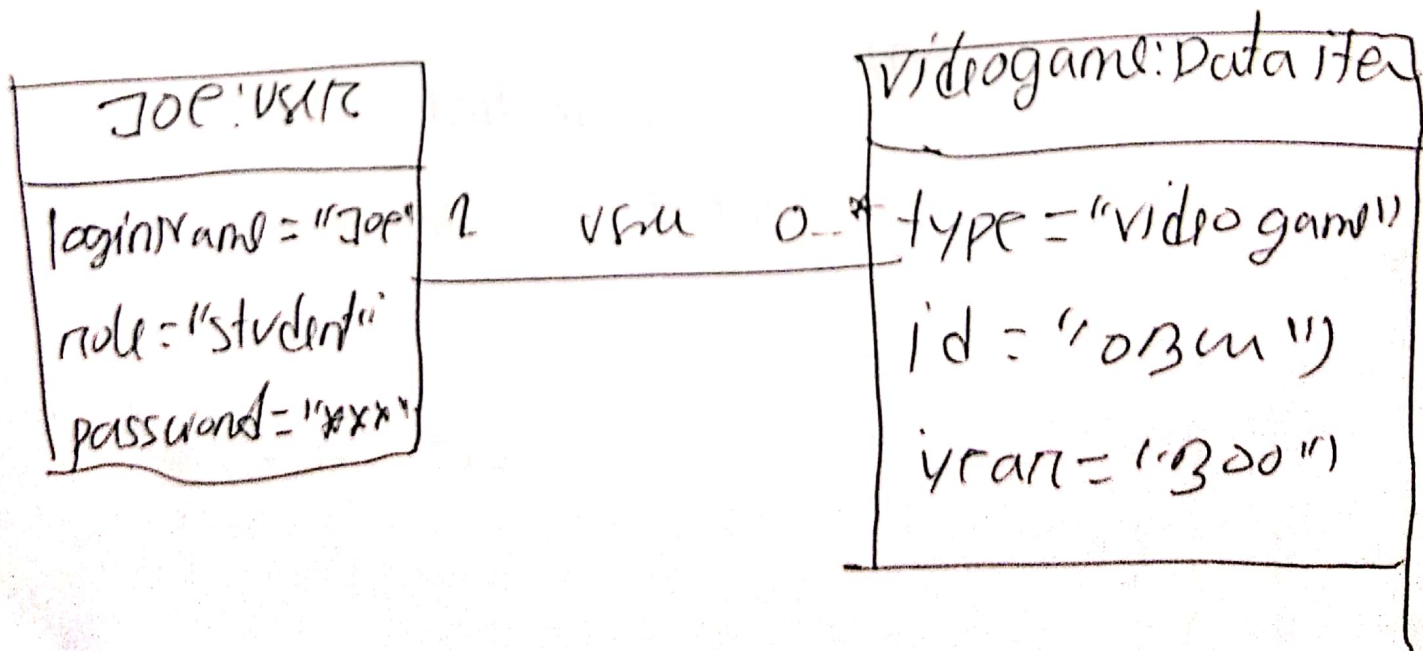 Joe:User
loginName="Joe"
role="student"
password="xxx"
1 0..*
videogame:Data ite
type="videogame"
id="
year="300"